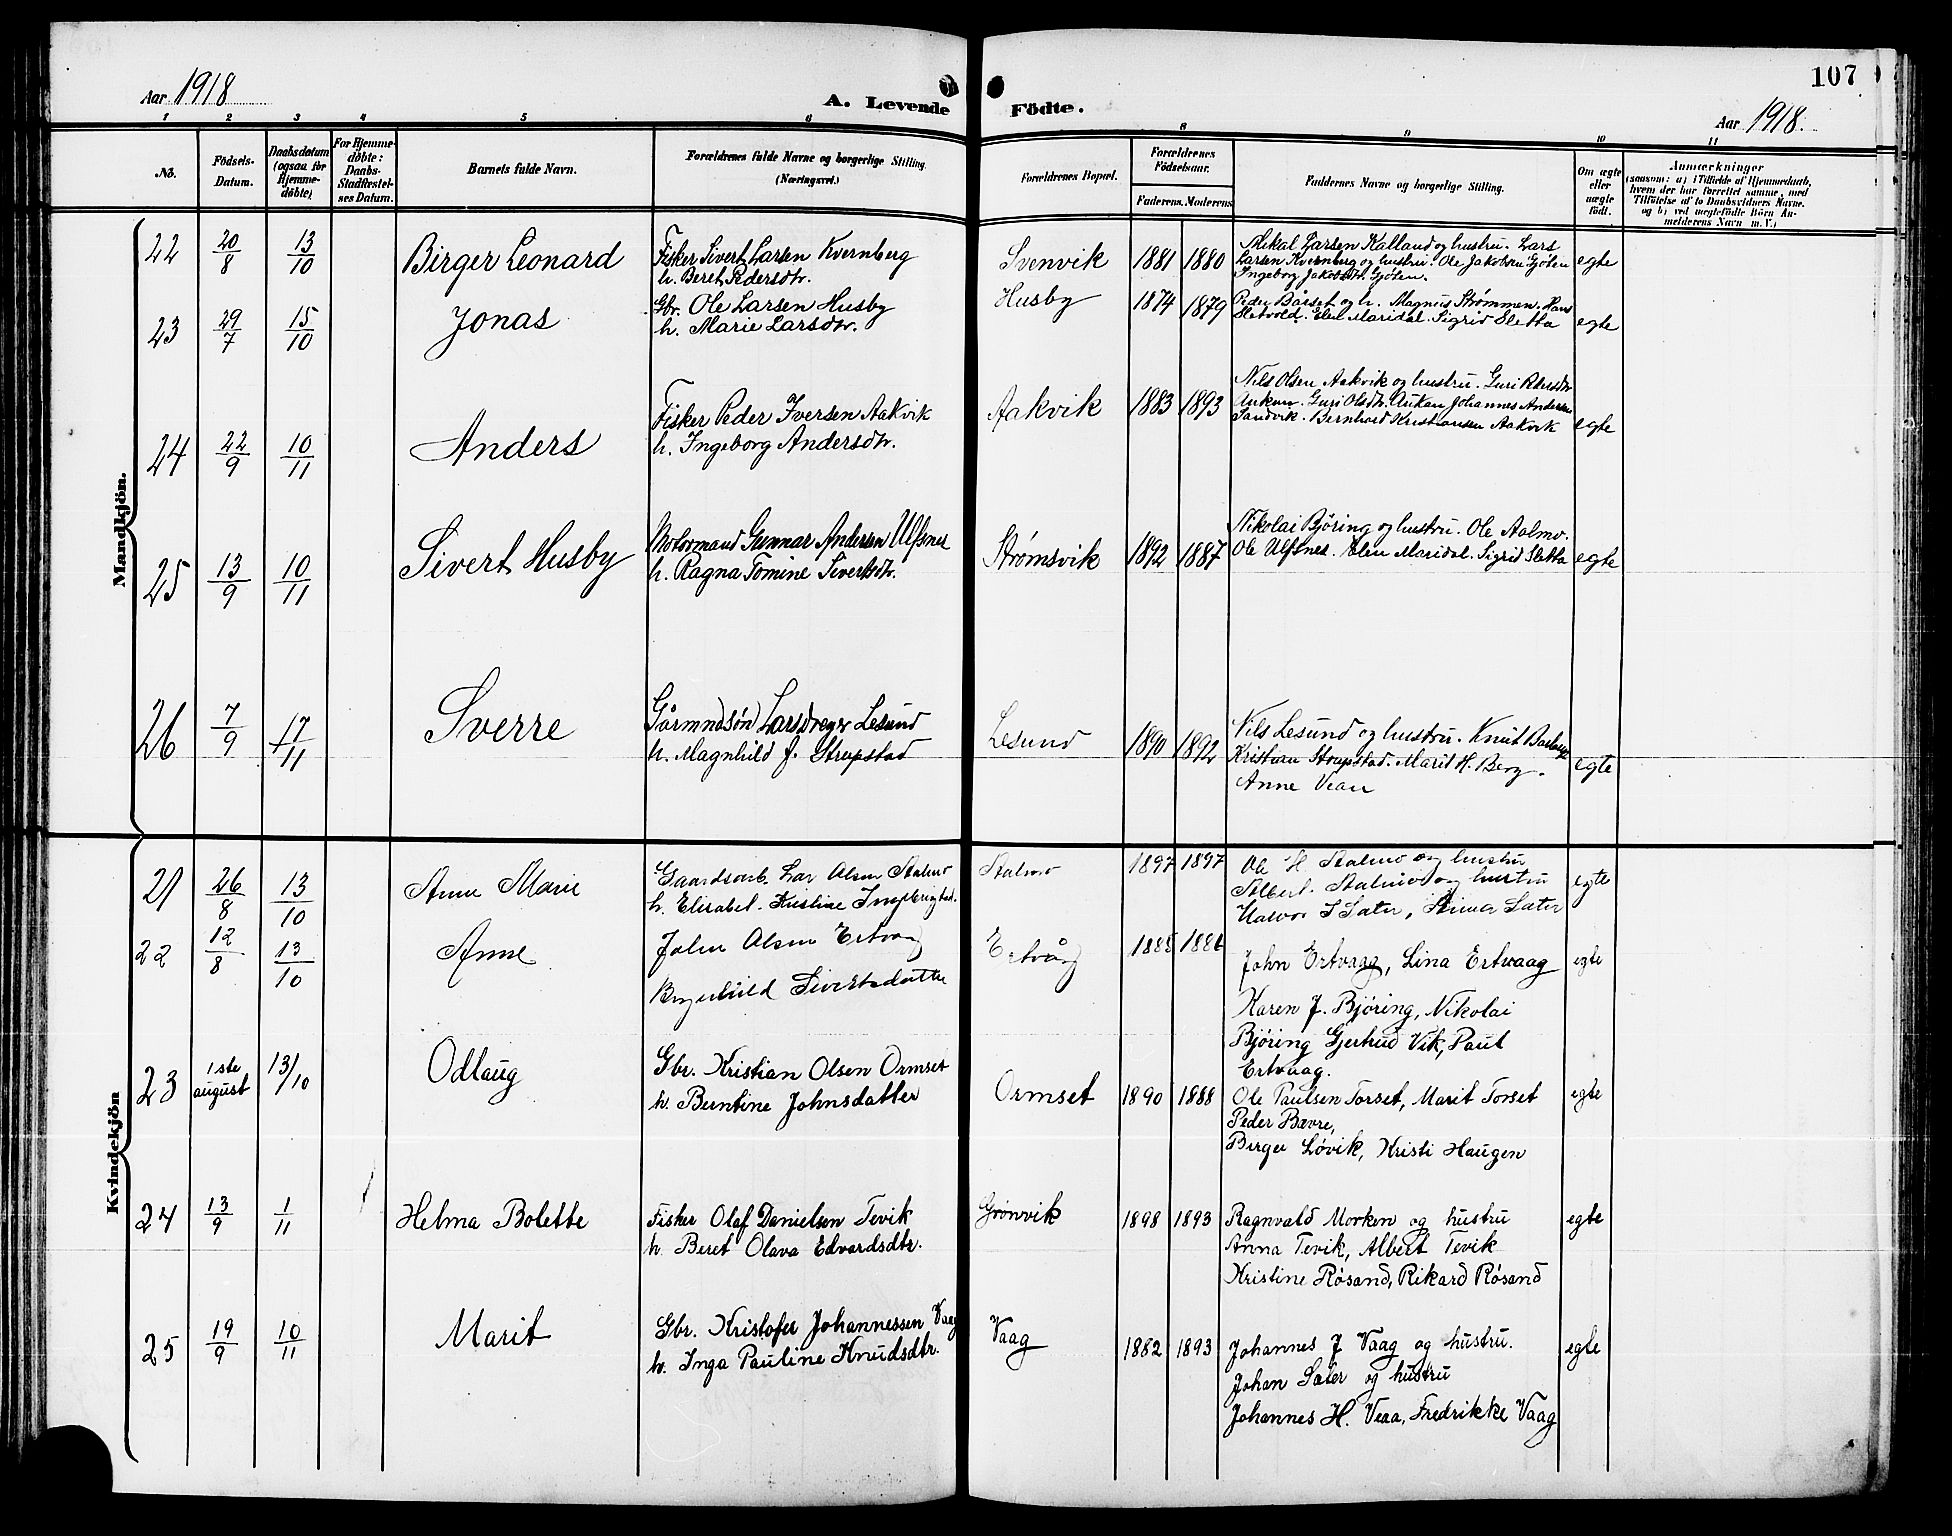 107
Aar 1918
A. Levende
Födte.
Aar 1918.
1 2 3 4 5 6
8 9 10 11
No.
Födsels-
Datum.
Daabsdatum
(ogsaa for
Hjemme-
döbte).
For Hjemme-
döbte:
Daabs-
Stadfæstel-
ses Datum.
Barnets fulde Navn.
Forældrenes fulde Navne og borgerlige Stilling.
(Næringsvei.)
Forældrenes Bopæl.
Forældrenes
Födselsaar.
Faderens. Moderens.
Faddernes Navne og borgerlige Stilling.
Om ægte
eller
uægte
født.
Anmærkninger
(saasom: a) i Tilfælde af Hjemmedaab,
hvem der har forrettet samme, med
Tilföielse af to Daabsvidners Navne.
og b) ved uægtefödte Börn An-
melderens Navn m. V.)
Mandkjön.
22 20/8 13/10 Birger Leonard
Fisker Sivert Larsen Kvernberg
h. Beret Pedersdtr.
Svenvik 1881 1880
Mikal Larsen Kalland og hustru. Lars
Larsen Kvernberg og hustru. Ole Jakobsen Gjøten
Ingeborg Jakobsdtr. Gjøten.
egte
23 29/7 15/10 Jonas
Gbr. Ole Larsen Husby
h. Marie Larsdtr.
Husby 1874 1879
Peder Bårset og h. Magnus Strømmen. Hans
Sletvold. Elen Maridal. Sigrid Sletta
egte
24 22/9 10/11 Anders
Fisker Peder Iversen Aakvik
h. Ingeborg Andersdtr.
Aakvik 1883 1893
Nils Olsen Aakvik og hustru. Guri Pedersdtr
Aukan. Guri Olsdtr. Aukan Johannes Andersen
Sandvik. Bernhard Kristiansen Aakvik
egte
25 13/9 10/11 Sivert Husby
Motormand Gunnar Andersen Ulfsnes
h. Ragna Tomine Sivertsdtr.
Strømsvik 1892 1887
Nikolai Bjøring og hustru. Ole Aalmo.
Ole Ulfsnes. Elen Maridal. Sigrid Sletta
egte
26 7/9 17/11 Sverre
Gårmndsøn Lars Lesund
h. Magnhild J. Strupstad
Lesund 1890 1892
Nils Lesund og hustru. Knut
Kristian Strupstad. Marit H. Berg.
Anne Vean
egte
Kvindekjön
21 26/8 13/10 Anne Marie
Gaardsarb. Lar Olsen Stalmo
h. Elisabet Kristine
Stalmo 1897 1897
Ole H Stalmo og hustru
Albert Stalmo og hustru
Halvor I Sæter, Sæter
egte
22 12/8 13/10 Anne
John Olsen Ertvåg
Sivertsdatter
Ertvåg 1885
John Ertvaag, Lina Ertvaag
Karen J. Bjøring, Nikolai
Bjøring Gjertrud Vik, Paul
Ertvaag.
egte
23 1ste august 13/10 Odlaug
Gbr. Kristian Olsen Ormset
h. Berntine Johnsdatter
Ormset 1890 1888
Ole Paulsen Torset, Marit Torset
Peder Bævre,
Birger Løvik, Kristi Haugen
egte
24 13/9 1/11 Helma Bolette
Fisker Olaf Danielsen Tevik
h. Beret Olava Edvardsdtr.
Grønvik 1898 1893
Ragnvald Morken og hustru
Anna Tevik, Albert Tevik
Kristine Røsand, Rikard Røsand
egte
25 19/9 10/11 Marit
Gbr. Kristofer Johannessen Vaag
h. Inga Pauline Knudsdtr.
Vaag 1882 1893
Johannes J Vaag og hustru.
Johan Sæter og hustru
Johannes H. Veaa, Fredrikke Vaag
egte